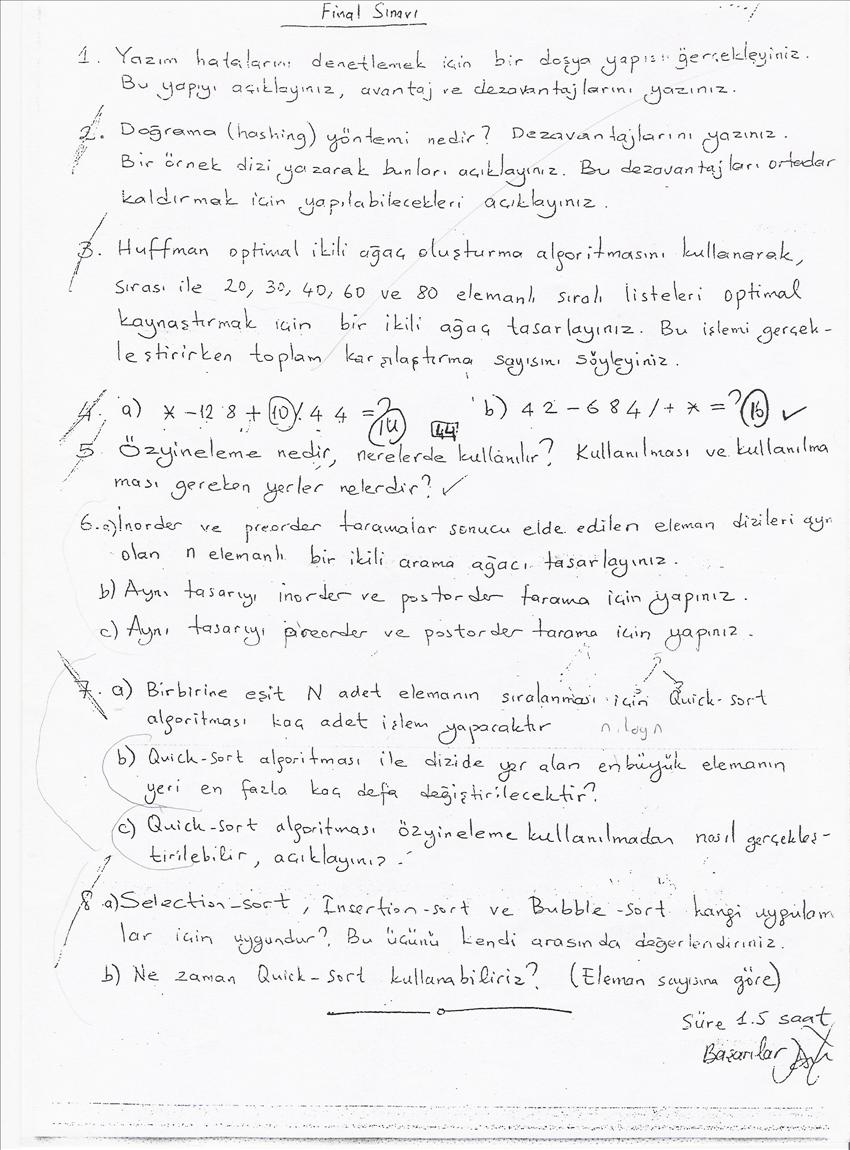 Final Sınavı
1. Yazım hatalarını denetlemek için bir dosya yapısı gerçekleyiniz.
Bu yapıyı açıklayınız, avantaj ve dezavantajlarını yazınız.
2. Doğrama (hashing) yöntemi nedir? Dezavantajlarını yazınız.
Bir örnek dizi yazarak bunları açıklayınız. Bu dezavantajları ortadar
kaldırmak için yapılabilecekleri açıklayınız.
3. Huffman optimal ikili ağaç oluşturma algoritmasını kullanarak,
sırası ile 20, 30, 40, 60 ve 80 elemanlı sıralı listeleri optimal
kaynaştırmak için bir ikili ağaç tasarlayınız. Bu işlemi gerçek-
leştirirken toplam karşılaştırma sayısını söyleyiniz.
4. a) * - 12 8 + 10 / 4 4 = ? 44 b) 4 2 - 6 8 4 / + * = ? 16 ✓
5 Özyineleme nedir, nerelerde kullanılır? Kullanılması ve kullanılma
ması gereken yerler nelerdir? ✓
6. a) Inorder ve preorder taramalar sonucu elde edilen eleman dizileri ayn
olan n elemanlı bir ikili arama ağacı tasarlayınız.
b) Aynı tasarıyı inorder ve postorder tarama için yapınız.
c) Aynı tasarıyı preorder ve postorder tarama için yapınız.
7. a) Birbirine eşit N adet elemanın sıralanması için Quick-sort
algoritması kaç adet işlem yapacaktır n.logn
b) Quick-sort algoritması ile dizide yer alan enbüyük elemanın
yeri en fazla kaç defa değiştirilecektir?
c) Quick-sort algoritması özyineleme kullanılmadan nasıl gerçekleş-
tirilebilir, açıklayınız.
8 a) Selection-sort, Insertion-sort ve Bubble-sort hangi uygulam
lar için uygundur? Bu üçünü kendi arasında değerlendiriniz.
b) Ne zaman Quick-sort kullanabiliriz? (Eleman sayısına göre)
Süre 1.5 saat
Başarılar